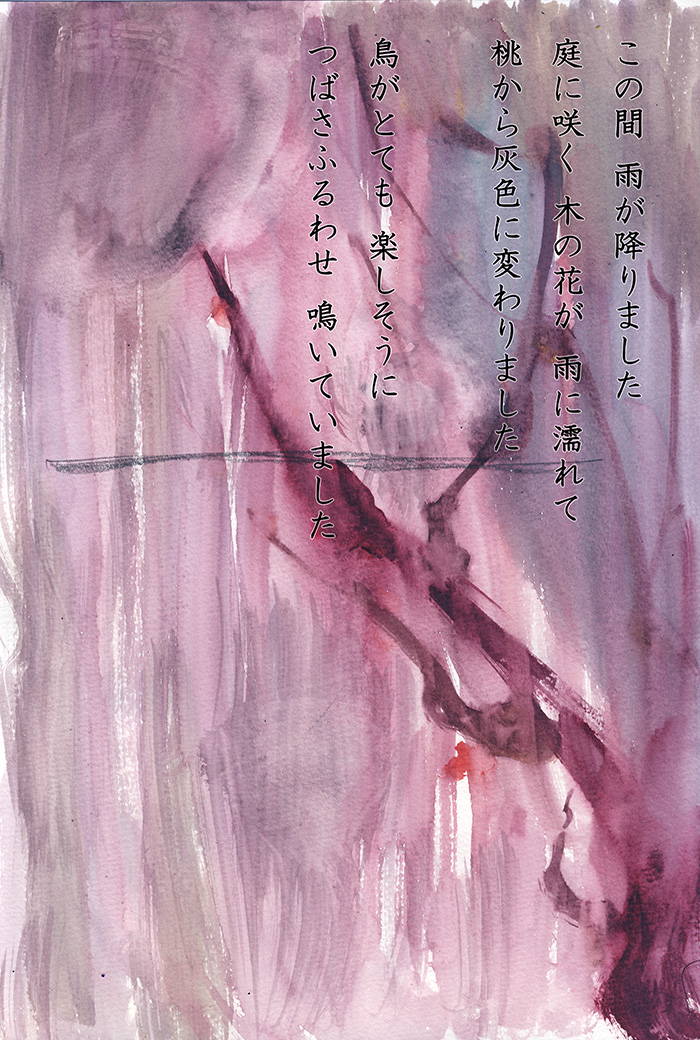 この間 雨が降りました
庭に咲く木の花が 雨に濡れて
桃から灰色に変わりました
鳥がとても 楽しそうに
つばさふるわせ 鳴いていました